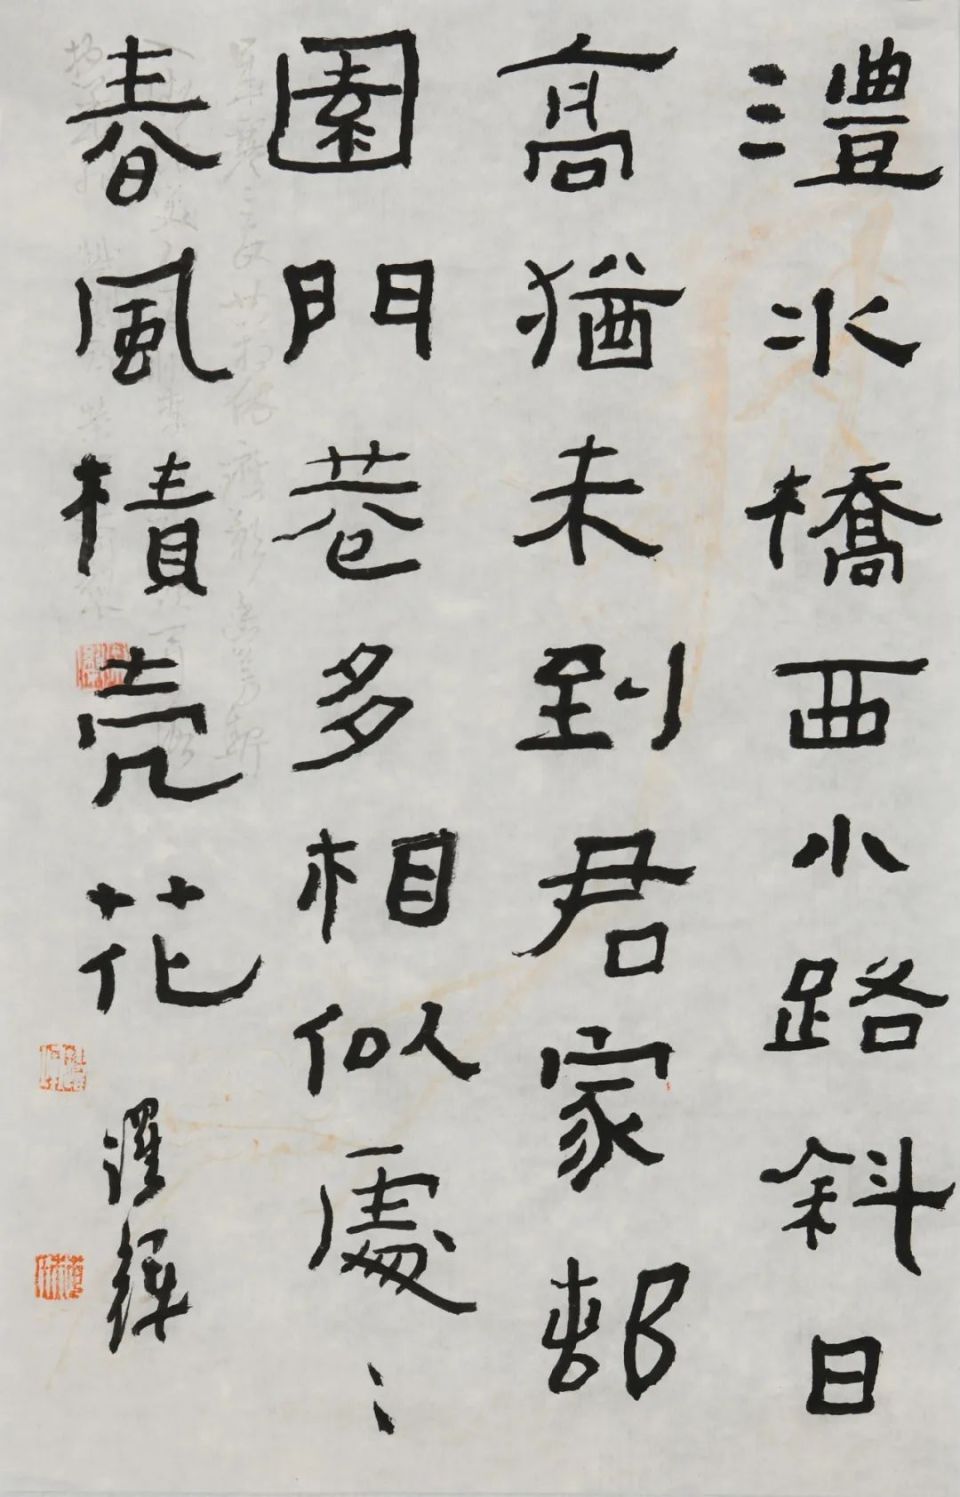 澧水橋西小路斜日
高猶未到君家邨
園門巷多相似處〻
春風樍壳花